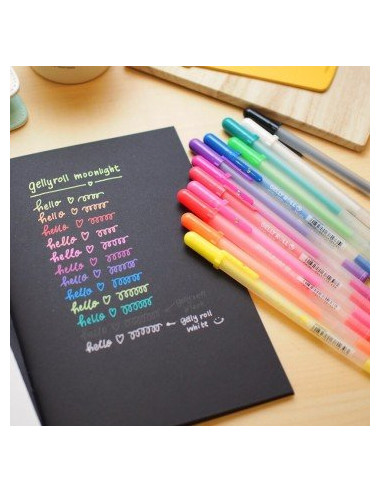 gellyroll moonlight
hello ♡
hello ♡
hello ♡
hello ♡
hello ♡
hello ♡
hello ♡
hello ♡
hello ♡
hello ♡
hello ♡ ← gelly roll
white ☺